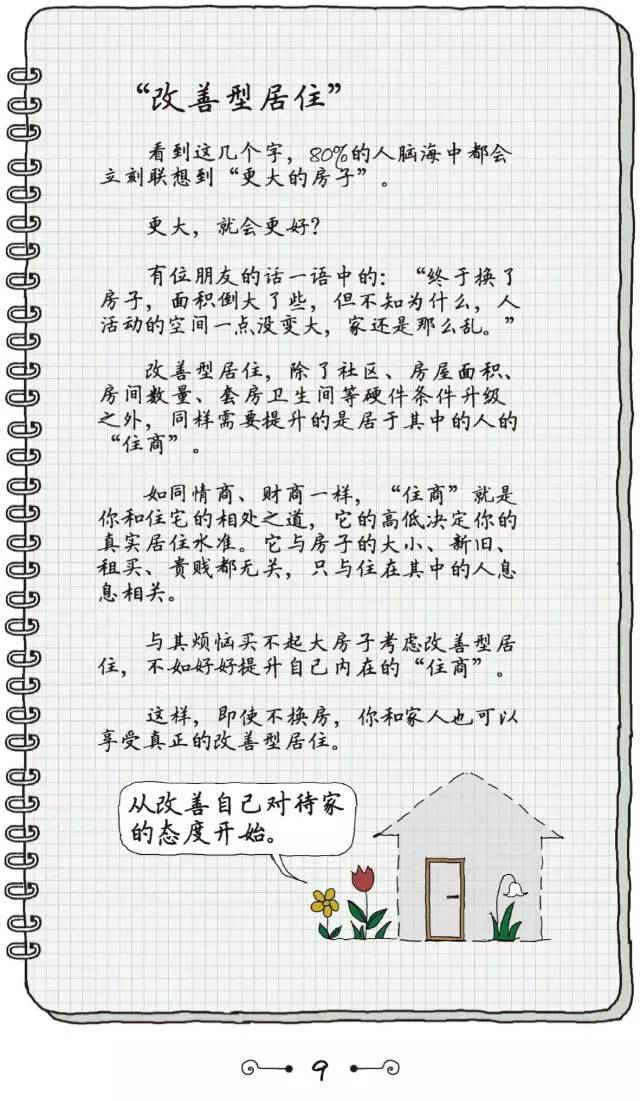 “改善型居住”
看到这几个字，80%的人脑海中都会
立刻联想到“更大的房子”。
更大，就会更好？
有位朋友的话一语中的：“终于换了
房子，面积倒大了些，但不知为什么，人
活动的空间一点没变大，家还是那么乱。”
改善型居住，除了社区、房屋面积、
房间数量、套房卫生间等硬件条件升级
之外，同样需要提升的是居于其中的人的
“住商”。
如同情商、财商一样，“住商”就是
你和住宅的相处之道，它的高低决定你的
真实居住水准。它与房子的大小、新旧、
租买、贵贱都无关，只与住在其中的人息
息相关。
与其烦恼买不起大房子考虑改善型居
住，不如好好提升自己内在的“住商”。
这样，即使不换房，你和家人也可以
享受真正的改善型居住。
从改善自己对待家
的态度开始。
9